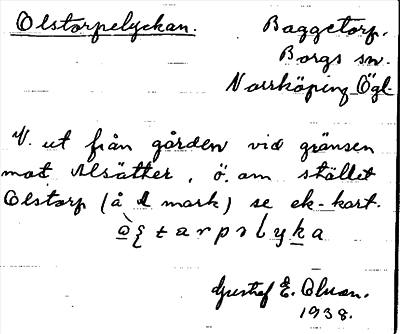 Olstorpelyckan.
Baggetorp.
Borgs sn.
Norrköping Ögl.
V. ut från gården vid gränsen
mot Alsätter, ö. om stället
Olstorp (å mark) se ek-kort.
Gustaf E. Olson.
1938.